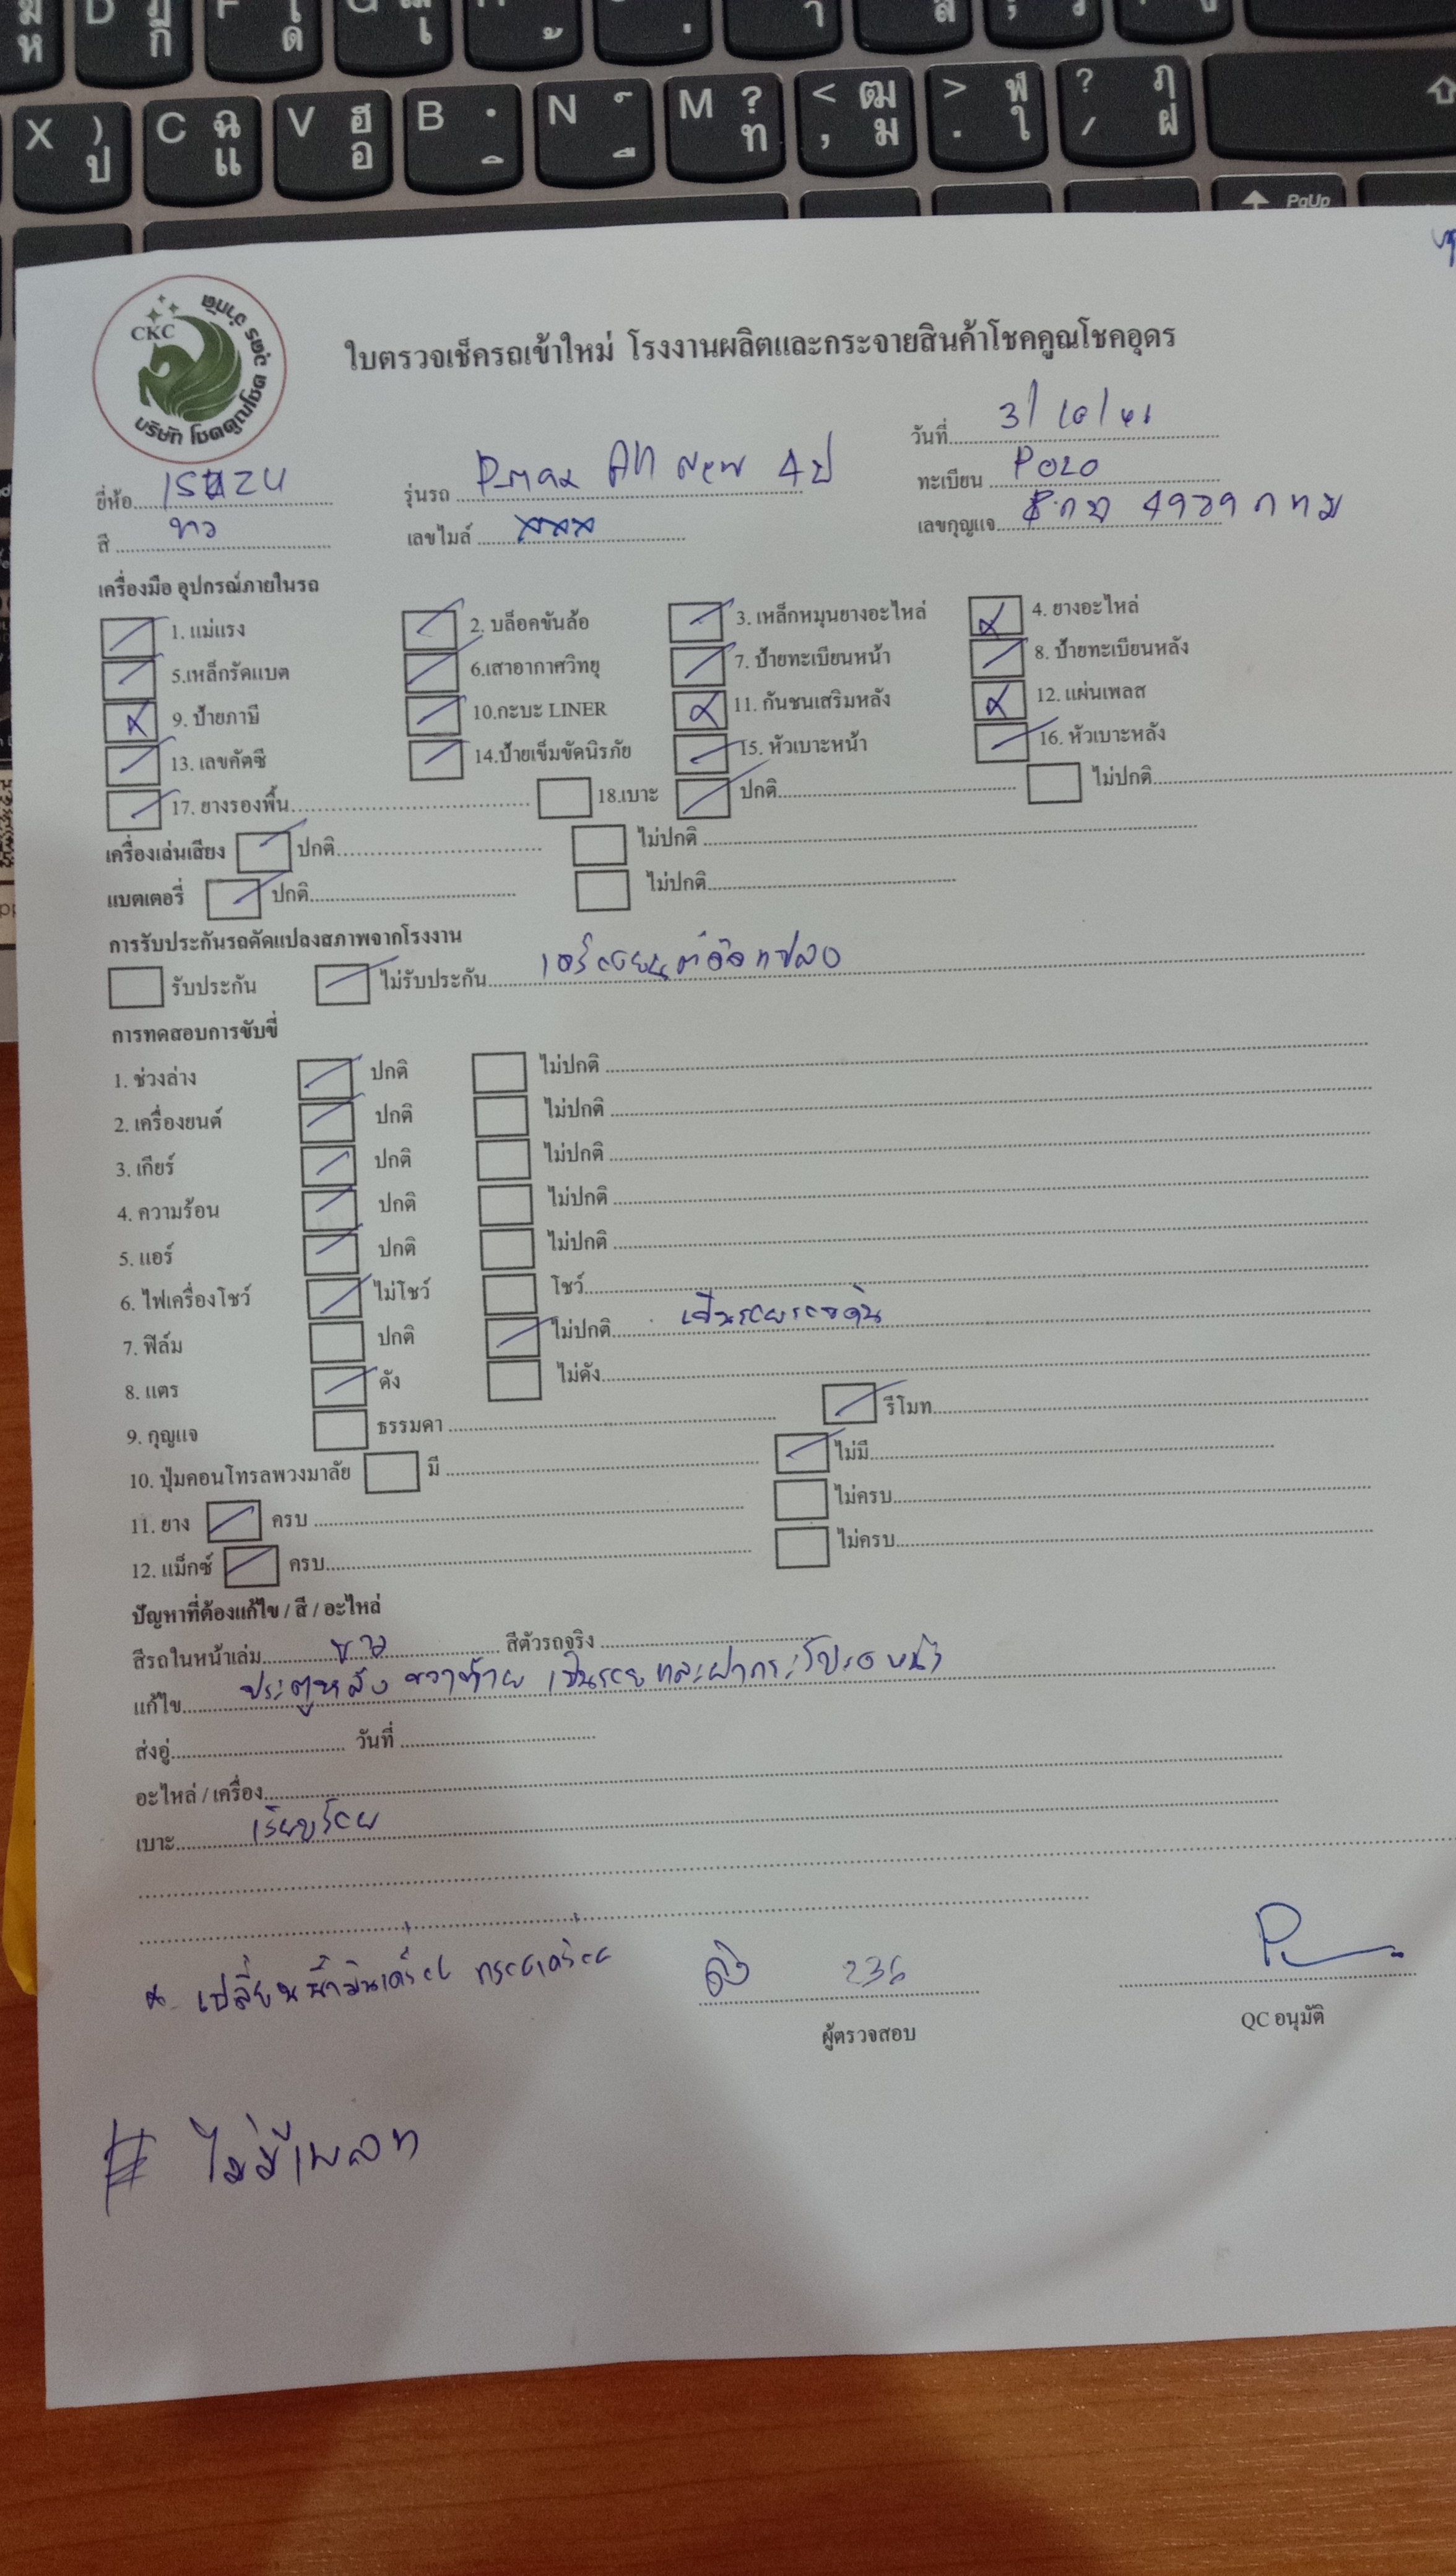 X ) ป C ฉ แ V ฮ อ B N M ? ท < , ฒ ม > . ฬ ใ ? / ฦ ฝ
PgUp
CKC
บริษัท โชคคูณโชค อุดร จำกัด
ใบตรวจเช็ครถเข้าใหม่ โรงงานผลิตและกระจายสินค้าโชคคูณโชคอุดร
วันที่
ยี่ห้อ ISUZU รุ่นรถ D-max All New 4 ป ทะเบียน
สี ขาว เลขไมล์ xxx เลขกุญแจ 4929 กทม
เครื่องมือ อุปกรณ์ภายในรถ
1. แม่แรง 2. บล็อคขันล้อ 3. เหล็กหมุนยางอะไหล่ 4. ยางอะไหล่
5.เหล็กรัดแบต 6.เสาอากาศวิทยุ 7. ป้ายทะเบียนหน้า 8. ป้ายทะเบียนหลัง
9. ป้ายภาษี 10.กะบะ LINER 11. กันชนเสริมหลัง 12. แผ่นเพลส
13. เลขคัตซี 14.ป้ายเข็มขัดนิรภัย 15. หัวเบาะหน้า 16. หัวเบาะหลัง
17. ยางรองพื้น 18.เบาะ ปกติ ไม่ปกติ
เครื่องเล่นเสียง ปกติ ไม่ปกติ
แบตเตอรี่ ปกติ ไม่ปกติ
การรับประกันรถดัดแปลงสภาพจากโรงงาน
รับประกัน ไม่รับประกัน
การทดสอบการขับขี่
1. ช่วงล่าง ปกติ ไม่ปกติ
2. เครื่องยนต์ ปกติ ไม่ปกติ
3. เกียร์ ปกติ ไม่ปกติ
4. ความร้อน ปกติ ไม่ปกติ
5. แอร์ ปกติ ไม่ปกติ
6. ไฟเครื่องโชว์ ไม่โชว์ โชว์
7. ฟิล์ม ปกติ ไม่ปกติ
8. แตร ดัง ไม่ดัง
9. กุญแจ ธรรมดา รีโมท
10. ปุ่มคอนโทรลพวงมาลัย มี ไม่มี
11. ยาง ครบ ไม่ครบ
12. แม็กซ์ ครบ ไม่ครบ
ปัญหาที่ต้องแก้ไข / สี / อะไหล่
สีรถในหน้าเล่ม ขาว สีตัวรถจริง
แก้ไข ประตูหลัง ขวาซ้าย เป็นรอยและฝากระโปรงหน้า
ส่งอู่ วันที่
อะไหล่ / เครื่อง
เบาะ เรียบร้อย
เปลี่ยนน้ำมันเครื่อง กรองเครื่อง 236
ผู้ตรวจสอบ QC อนุมัติ
# ไม่มีเพลท